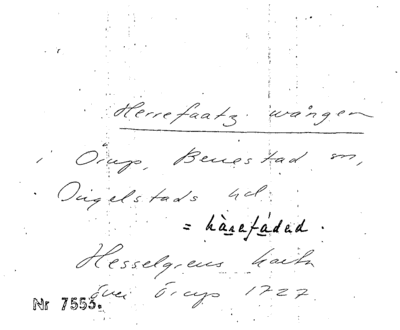 Herrefaatz wången
i Örup, Benestad sn,
Ingelstads hd.
= hàrefàded.
Hesselgrens karta
över Örup 1727
Nr 7553.